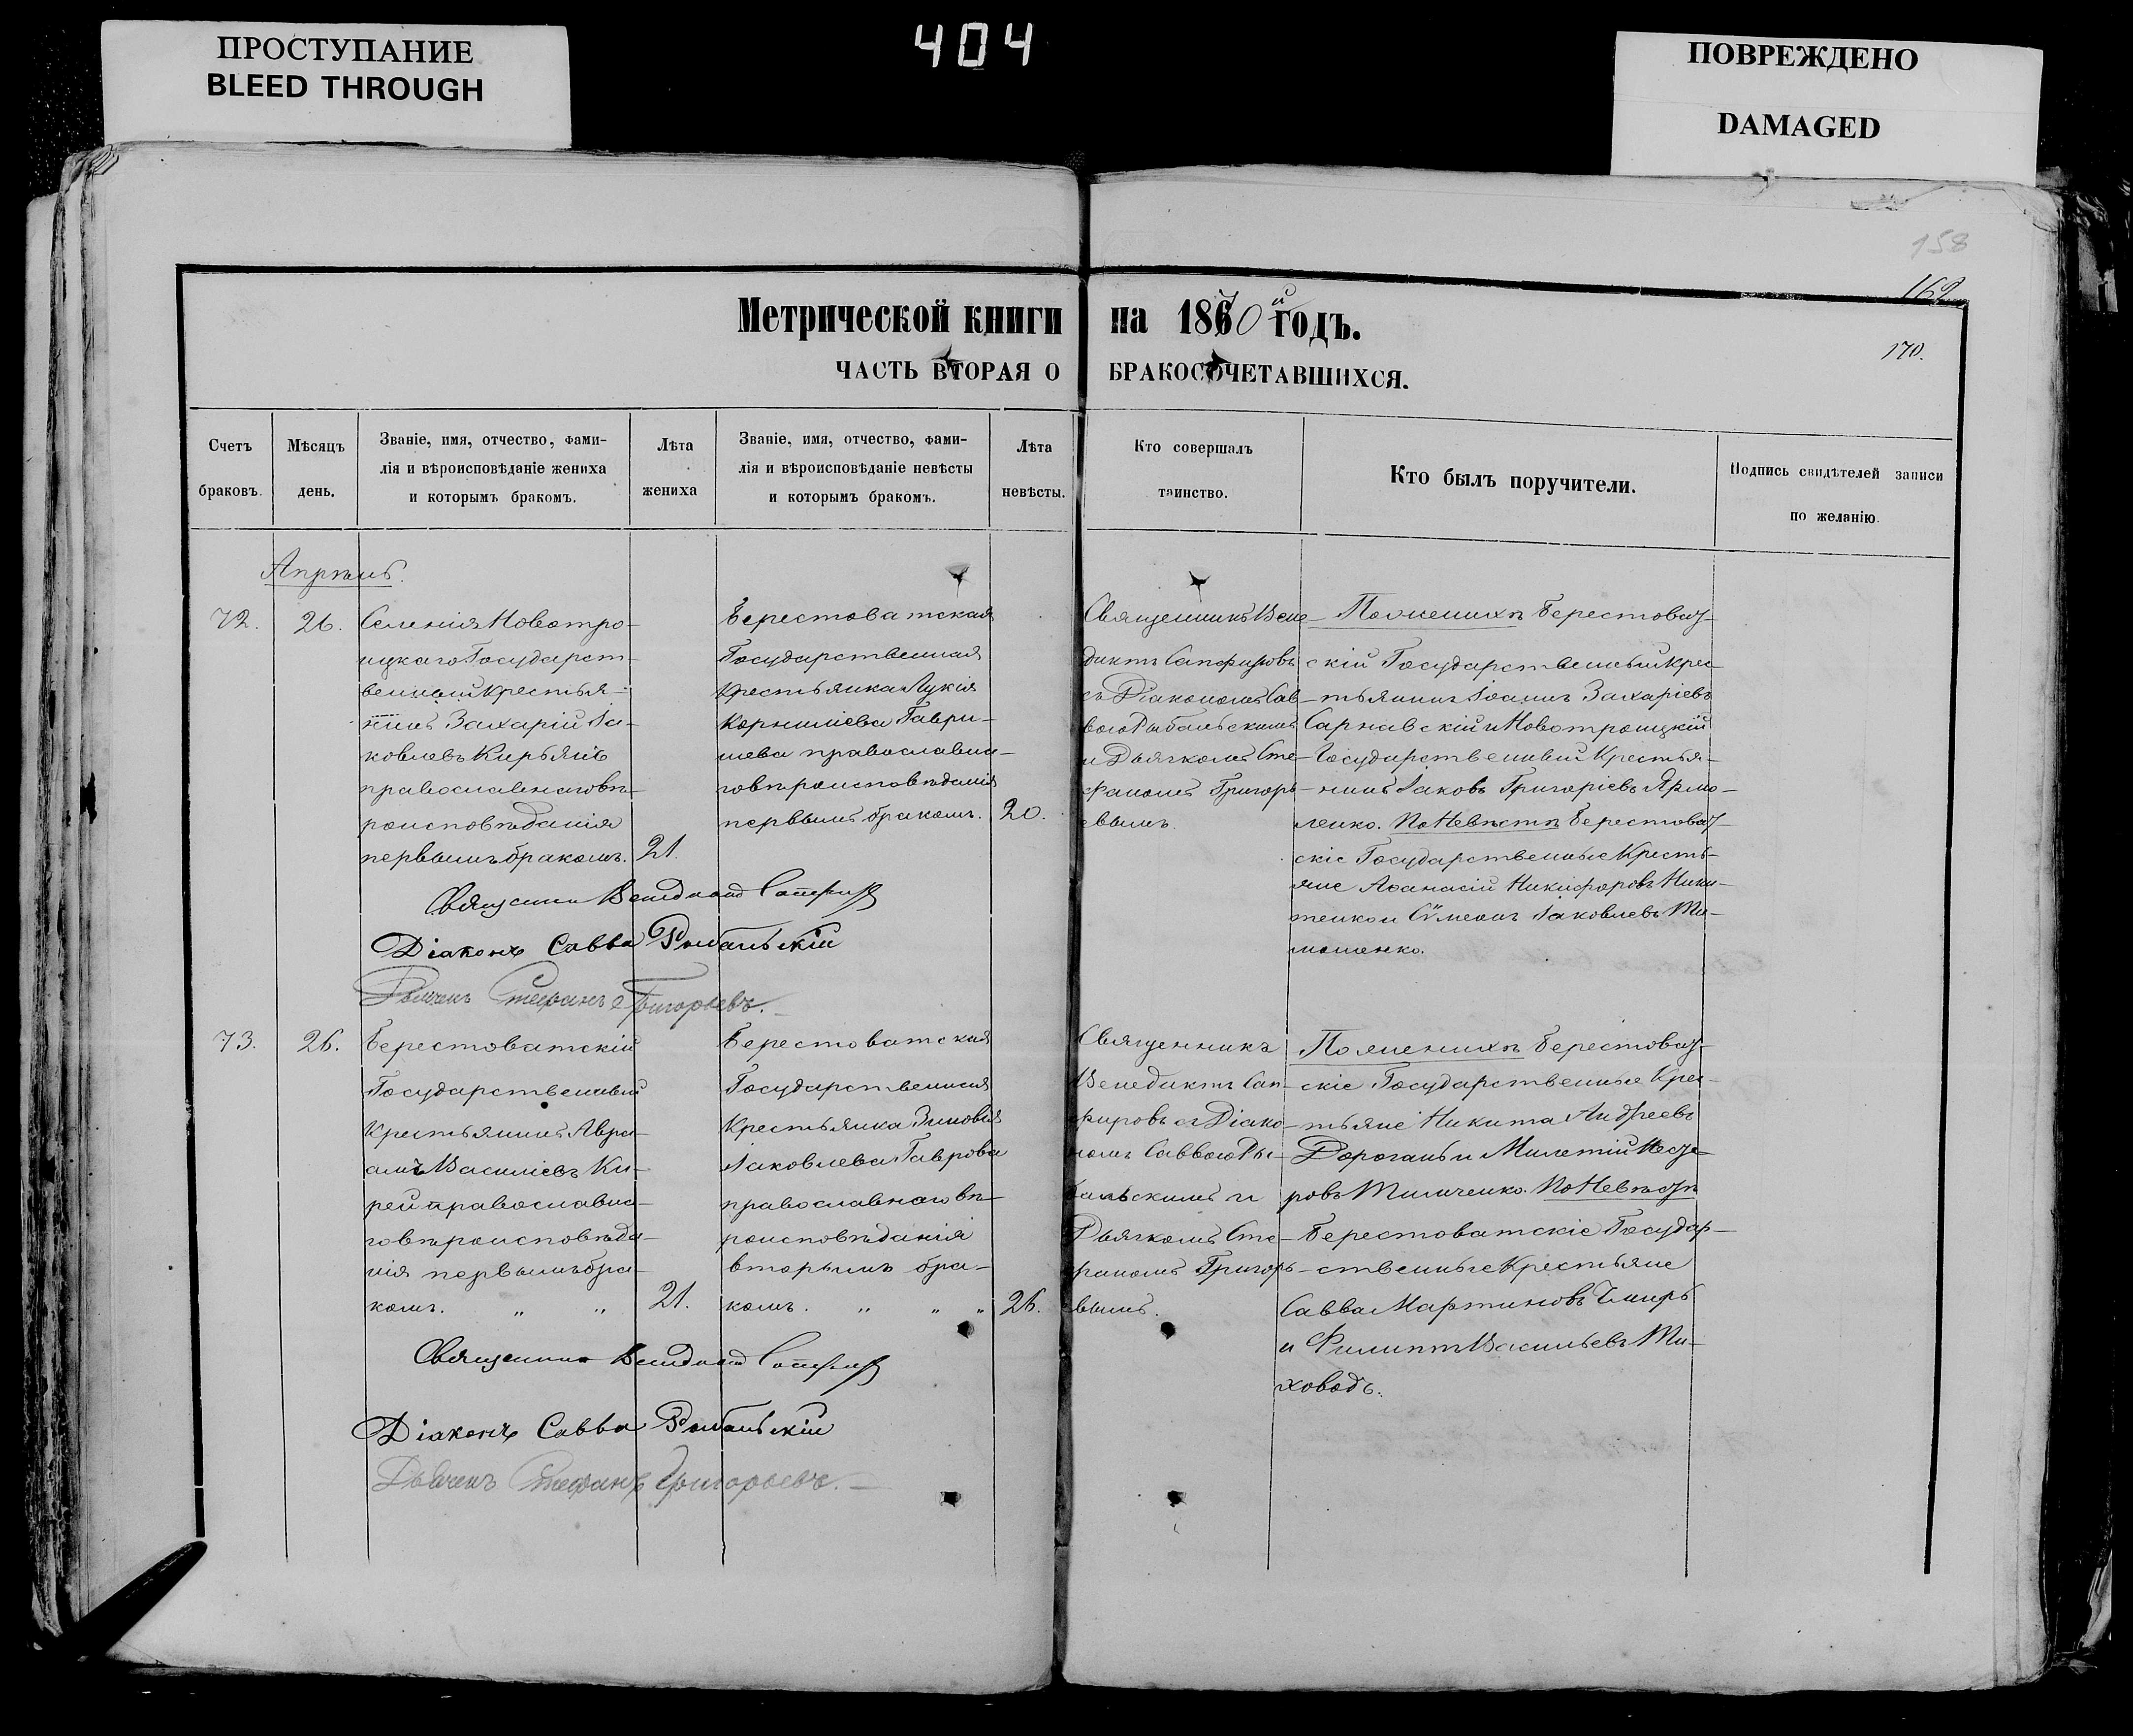 ПРОСТУПАНИЕ
BLEED THROUGH
404
ПОВРЕЖДЕНО
DAMAGED
158
162
170.
Метрической книги на 1870й годъ.
ЧАСТЬ ВТОРАЯ О БРАКОСОЧЕТАВШИХСЯ.
Счетъ браковъ.
Мѣсяцъ день.
Званіе, имя, отчество, фами-
лія и вѣроисповѣданіе жениха
и которымъ бракомъ.
Лѣта жениха
Званіе, имя, отчество, фами-
лія и вѣроисповѣданіе невѣсты
и которымъ бракомъ.
Лѣта невѣсты.
Кто совершалъ
таинство.
Кто былъ поручители.
Подпись свидѣтелей записи
по желанію.
Апрѣль.
72.
26.
Селенія Новотро-
ицкаго Государст-
венный крестья-
нинъ Захарій Іа-
ковлевъ Кирьянъ
православнаго вѣ-
роисповѣданія
первымъ бракомъ.
21.
Берестоватская
Государственная
крестьянка Лукія
Корниліева Гаври-
шева православна-
го вѣроисповѣданія
первымъ бракомъ.
20.
Священникъ Вене-
диктъ Сапфировъ
съ Діакономъ Сав-
вою Рыбальскимъ
и Дьячкомъ Сте-
фаномъ Григорь-
евымъ.
По женихѣ Берестоват-
скій Государственный крес-
тьянинъ Іоаннъ Захаріевъ
Сарнавскій и Новотроицкій
Государственный Крестья-
нинъ Іаковъ Григоріевъ Ярмо-
ленко. По Невѣстѣ Берестоват-
скіе Государственные Кресть-
яне Аѳанасій Никифоровъ Ники-
тенко и Сѷмеонъ Іаковлевъ Ти-
мошенко.
Священникъ Венедиктъ Сапфировъ
Діаконъ Савва Рыбальскій
Дьячекъ Стефанъ Григорьевъ.
73.
26.
Берестоватскій
Государственный
Крестьянинъ Авра-
амъ Василіевъ Ки-
рей православна-
го вѣроисповѣда-
нія первымъ бра-
комъ. „ „
21.
Берестоватская
Государственная
Крестьянка Зиновія
Іаковлева Гаврова
православнаго вѣ-
роисповѣданія
вторымъ бра-
комъ. „ „ „
26.
Священникъ
Венедиктъ Сап-
фировъ съ Діако-
номъ Саввою Ры-
бальскимъ и
Дьячкомъ Сте-
фаномъ Григорь-
евымъ.
По женихѣ Берестоват-
скіе Государственные Крес-
тьяне Никита Андреевъ
Дорогань и Милетій Несте-
ровъ Тимченко. По Невѣстѣ
Берестоватскіе Государ-
ственные Крестьяне
Савва Мартиновъ
и Филиппъ Васильевъ Ти-
ховодъ.
Священникъ Венедиктъ Сапфировъ
Діаконъ Савва Рыбальскій
Дьячекъ Стефанъ Григорьевъ.